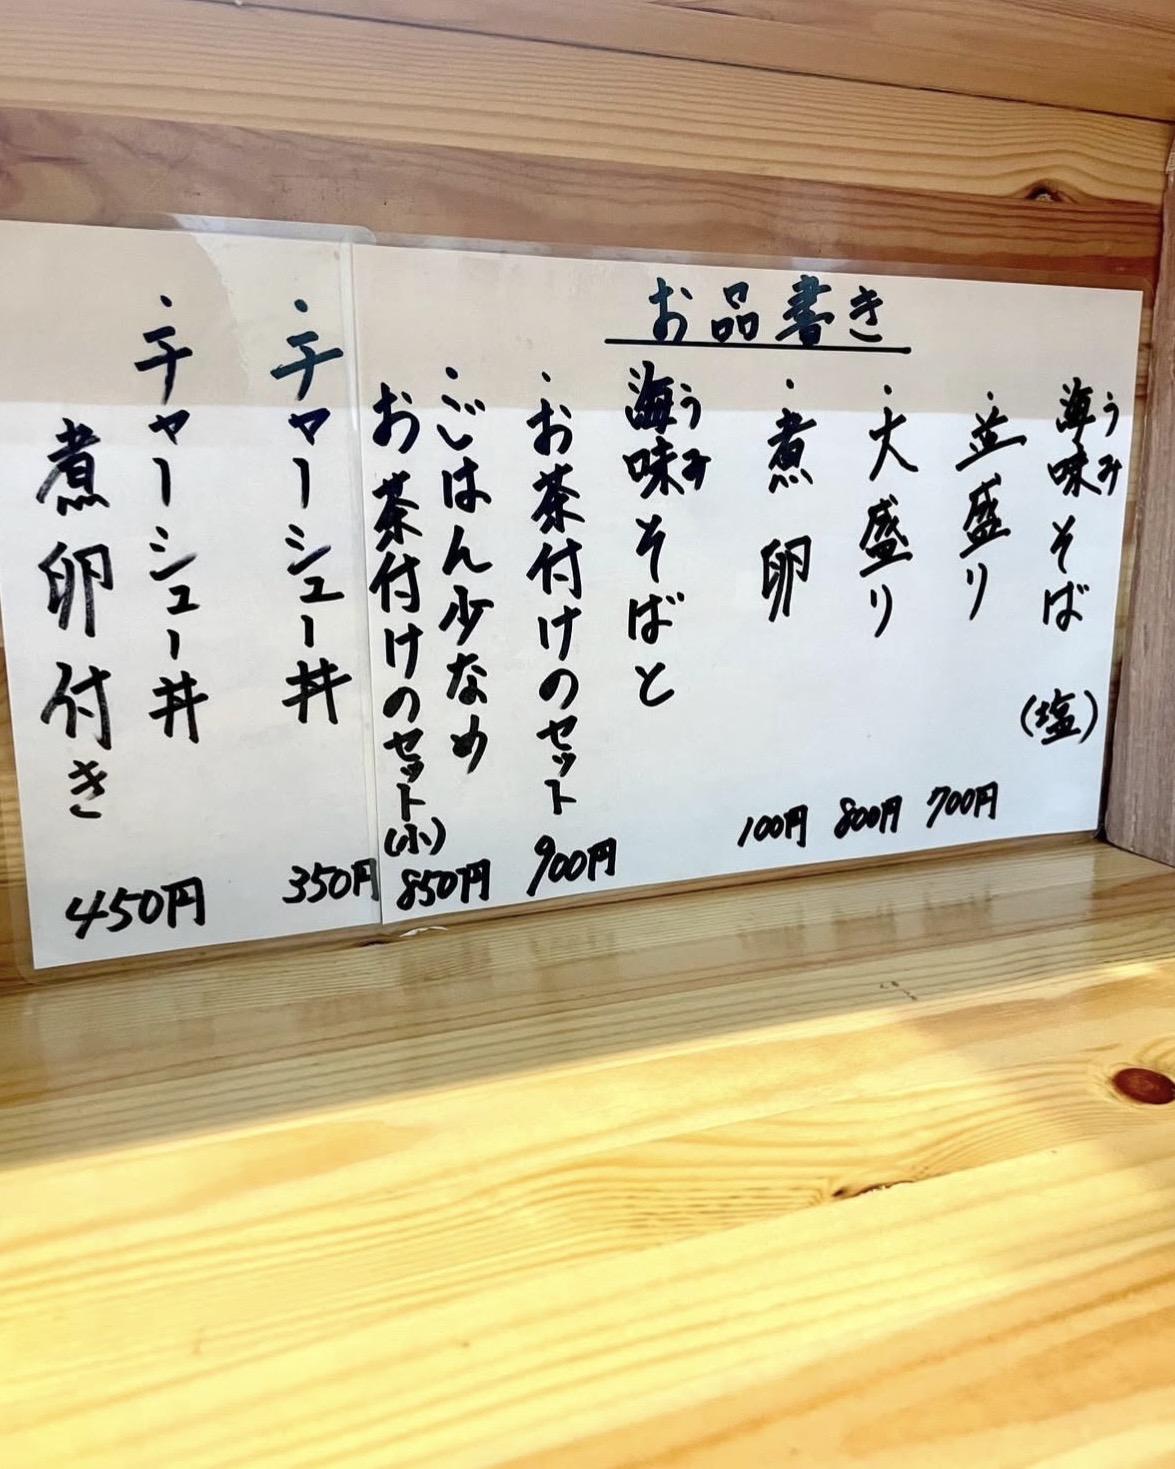 お品書き
海味そば (塩)
うみ
・並盛り 700円
・大盛り 800円
・煮卵 100円
海味そばと
うみ
・お茶付けのセット 900円
・ごはん少なめ
お茶付けのセット(小) 850円
・チャーシュー丼 350円
・チャーシュー丼
煮卵付き 450円